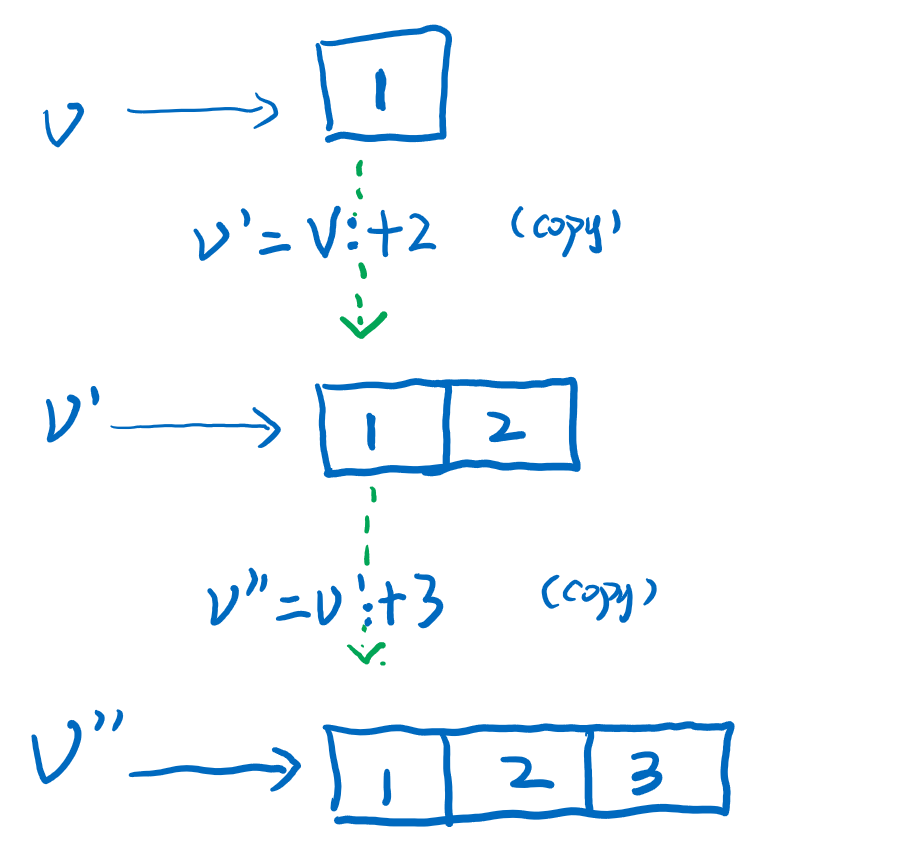 v 1
v' = v :+ 2 (copy)
v' 1 2
v'' = v' :+ 3 (copy)
v'' 1 2 3